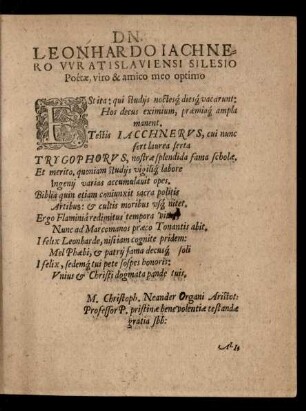 DN.
LEONHARDO IACHNE-
RO VVRATISLAVIENSI SILESIO
Poëtæ, viro & amico meo optimo
ESt ita: qui studijs noctesq́; diesq́; vacarunt;
Hos decus eximium, præmiaq́; ampla
manent.
Testis IACCHNERVS, cui nunc
fert laurea serta
TRYGOPHORVS, nostræ splendida fama scholæ.
Et merito, quoniam studijs vigiliq́; labore
Ingenij varias accumulavit opes.
Biblia quin etiam coniunxit sacra politis
Artibus: & cultis moribus vsq́; nitet.
Ergo Flaminiâ redimitus tempora
Nunc ad Marcomanos præco Tonantis abit.
I felix Leonharde, nisi iam cognite pridem:
Mel Phœbi, & patrij fama decusq́; soli
I felix, sedemq́; tui pete sospes honoris:
Vnius & Christi dogmata pande tuis.
M. Christoph. Neander Organi Aristot:
Professor P. pristinæ benevolentiæ testandæ
gratia sbb: